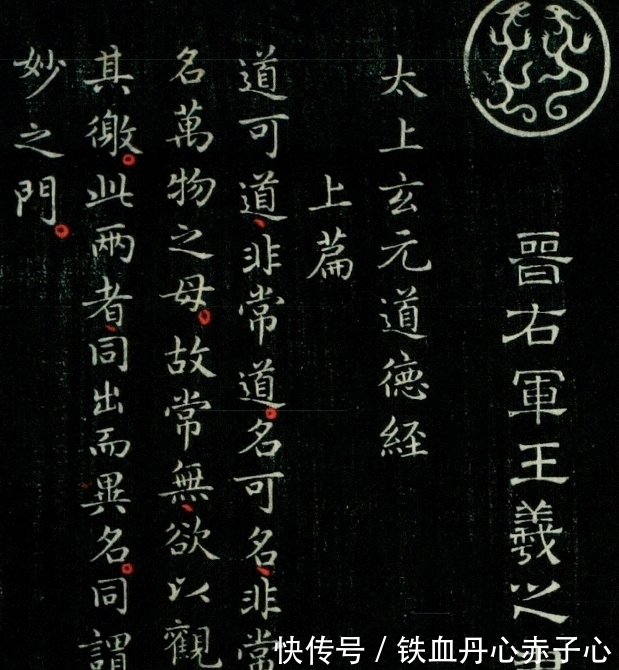 晉右軍王羲之
太上玄元道德經
上篇
道可道非常道名可名非常
名萬物之母故常無欲以觀
其徼此兩者同出而異名同謂
妙之門
快传号/铁血丹心赤子心